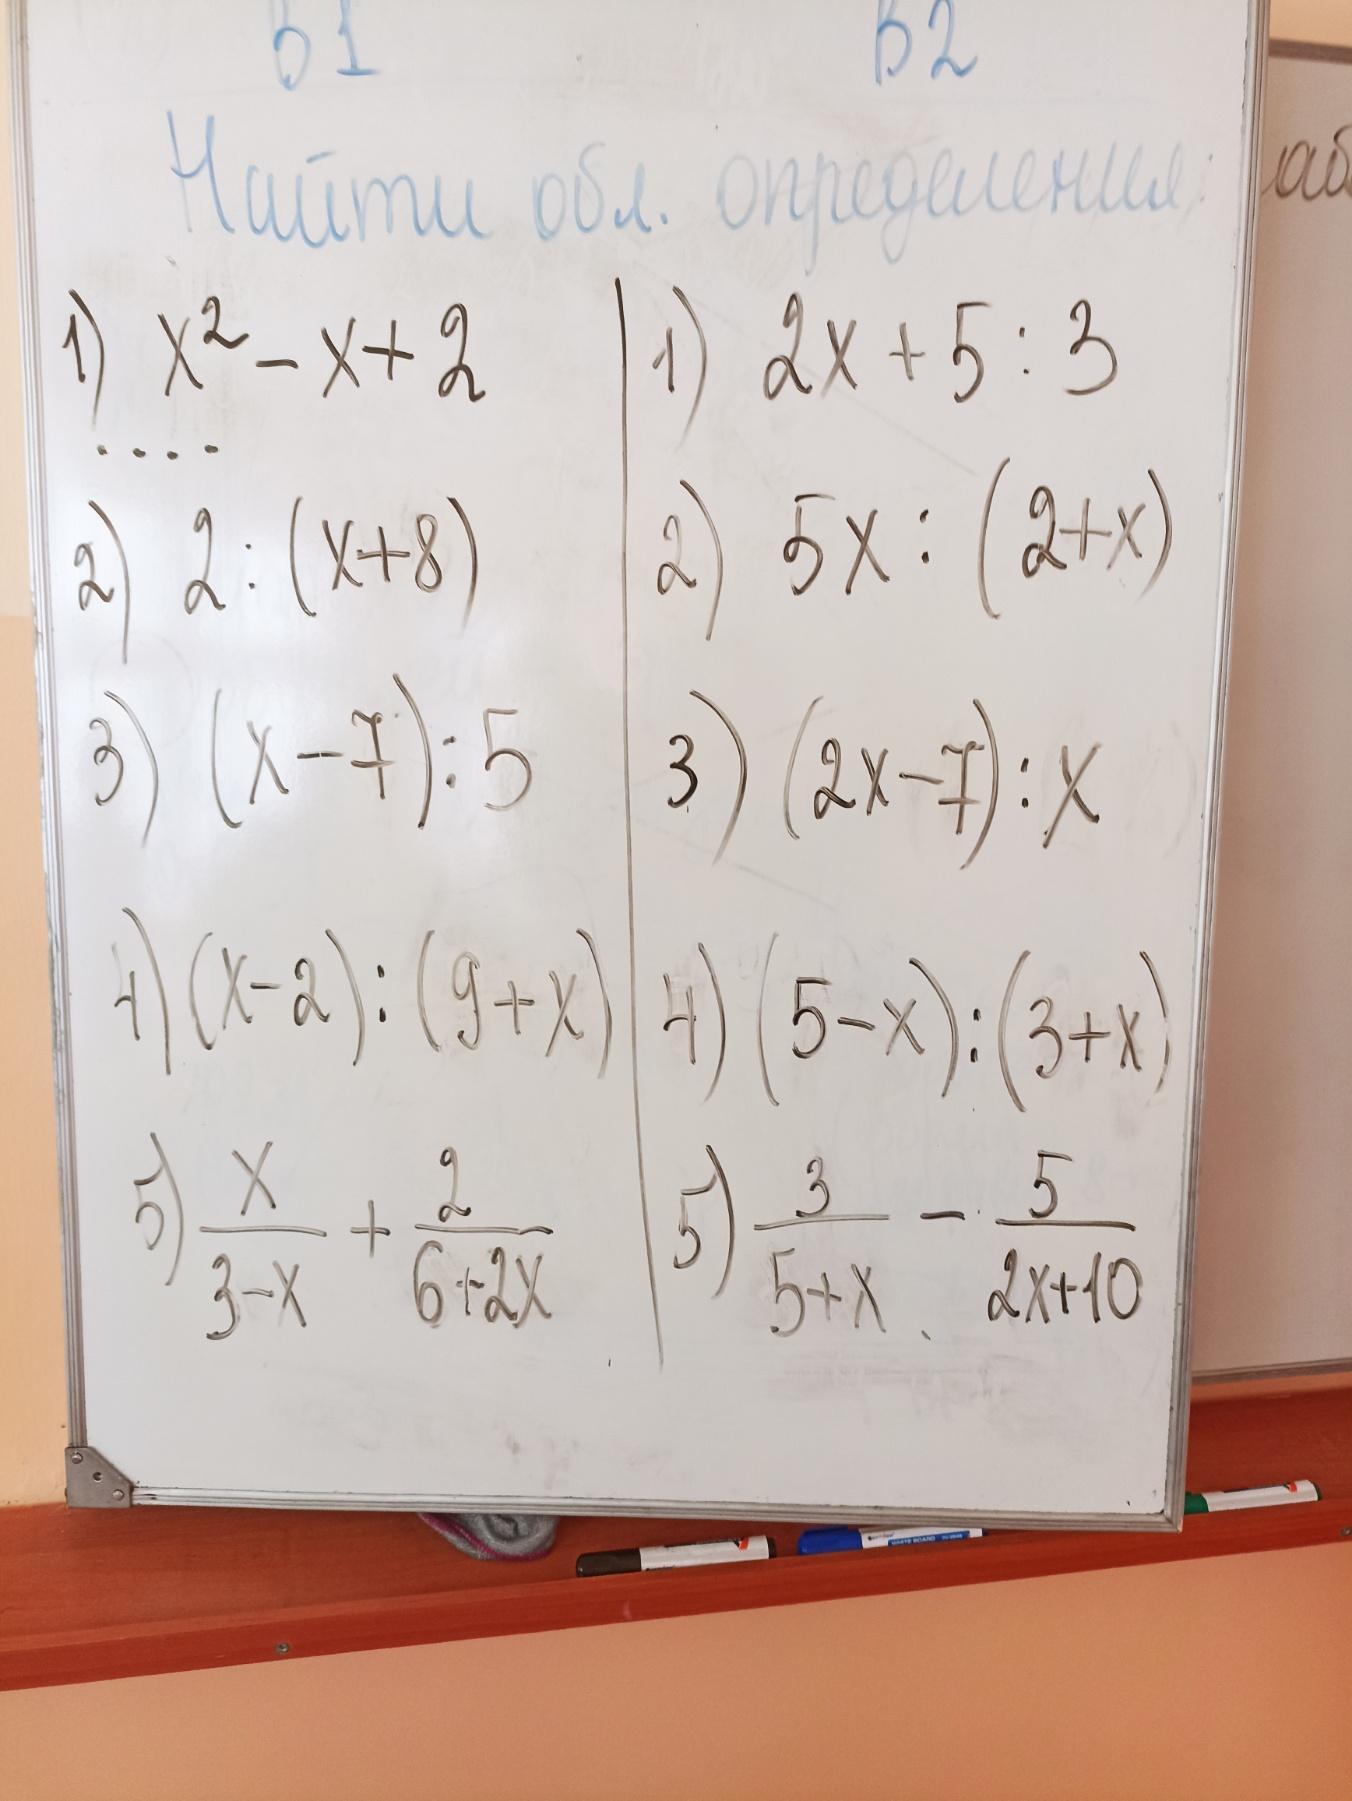 В1 В2
Найти обл. определения
1) x² - x + 2
....
2) 2 : (x+8)
3) (x-7) : 5
4) (x-2) : (9+x)
5) x/(3-x) + 2/(6+2x)
1) 2x + 5 : 3
2) 5x : (2+x)
3) (2x-7) : x
4) (5-x) : (3+x)
5) 3/(5+x) - 5/(2x+10)
WHITE BOARD